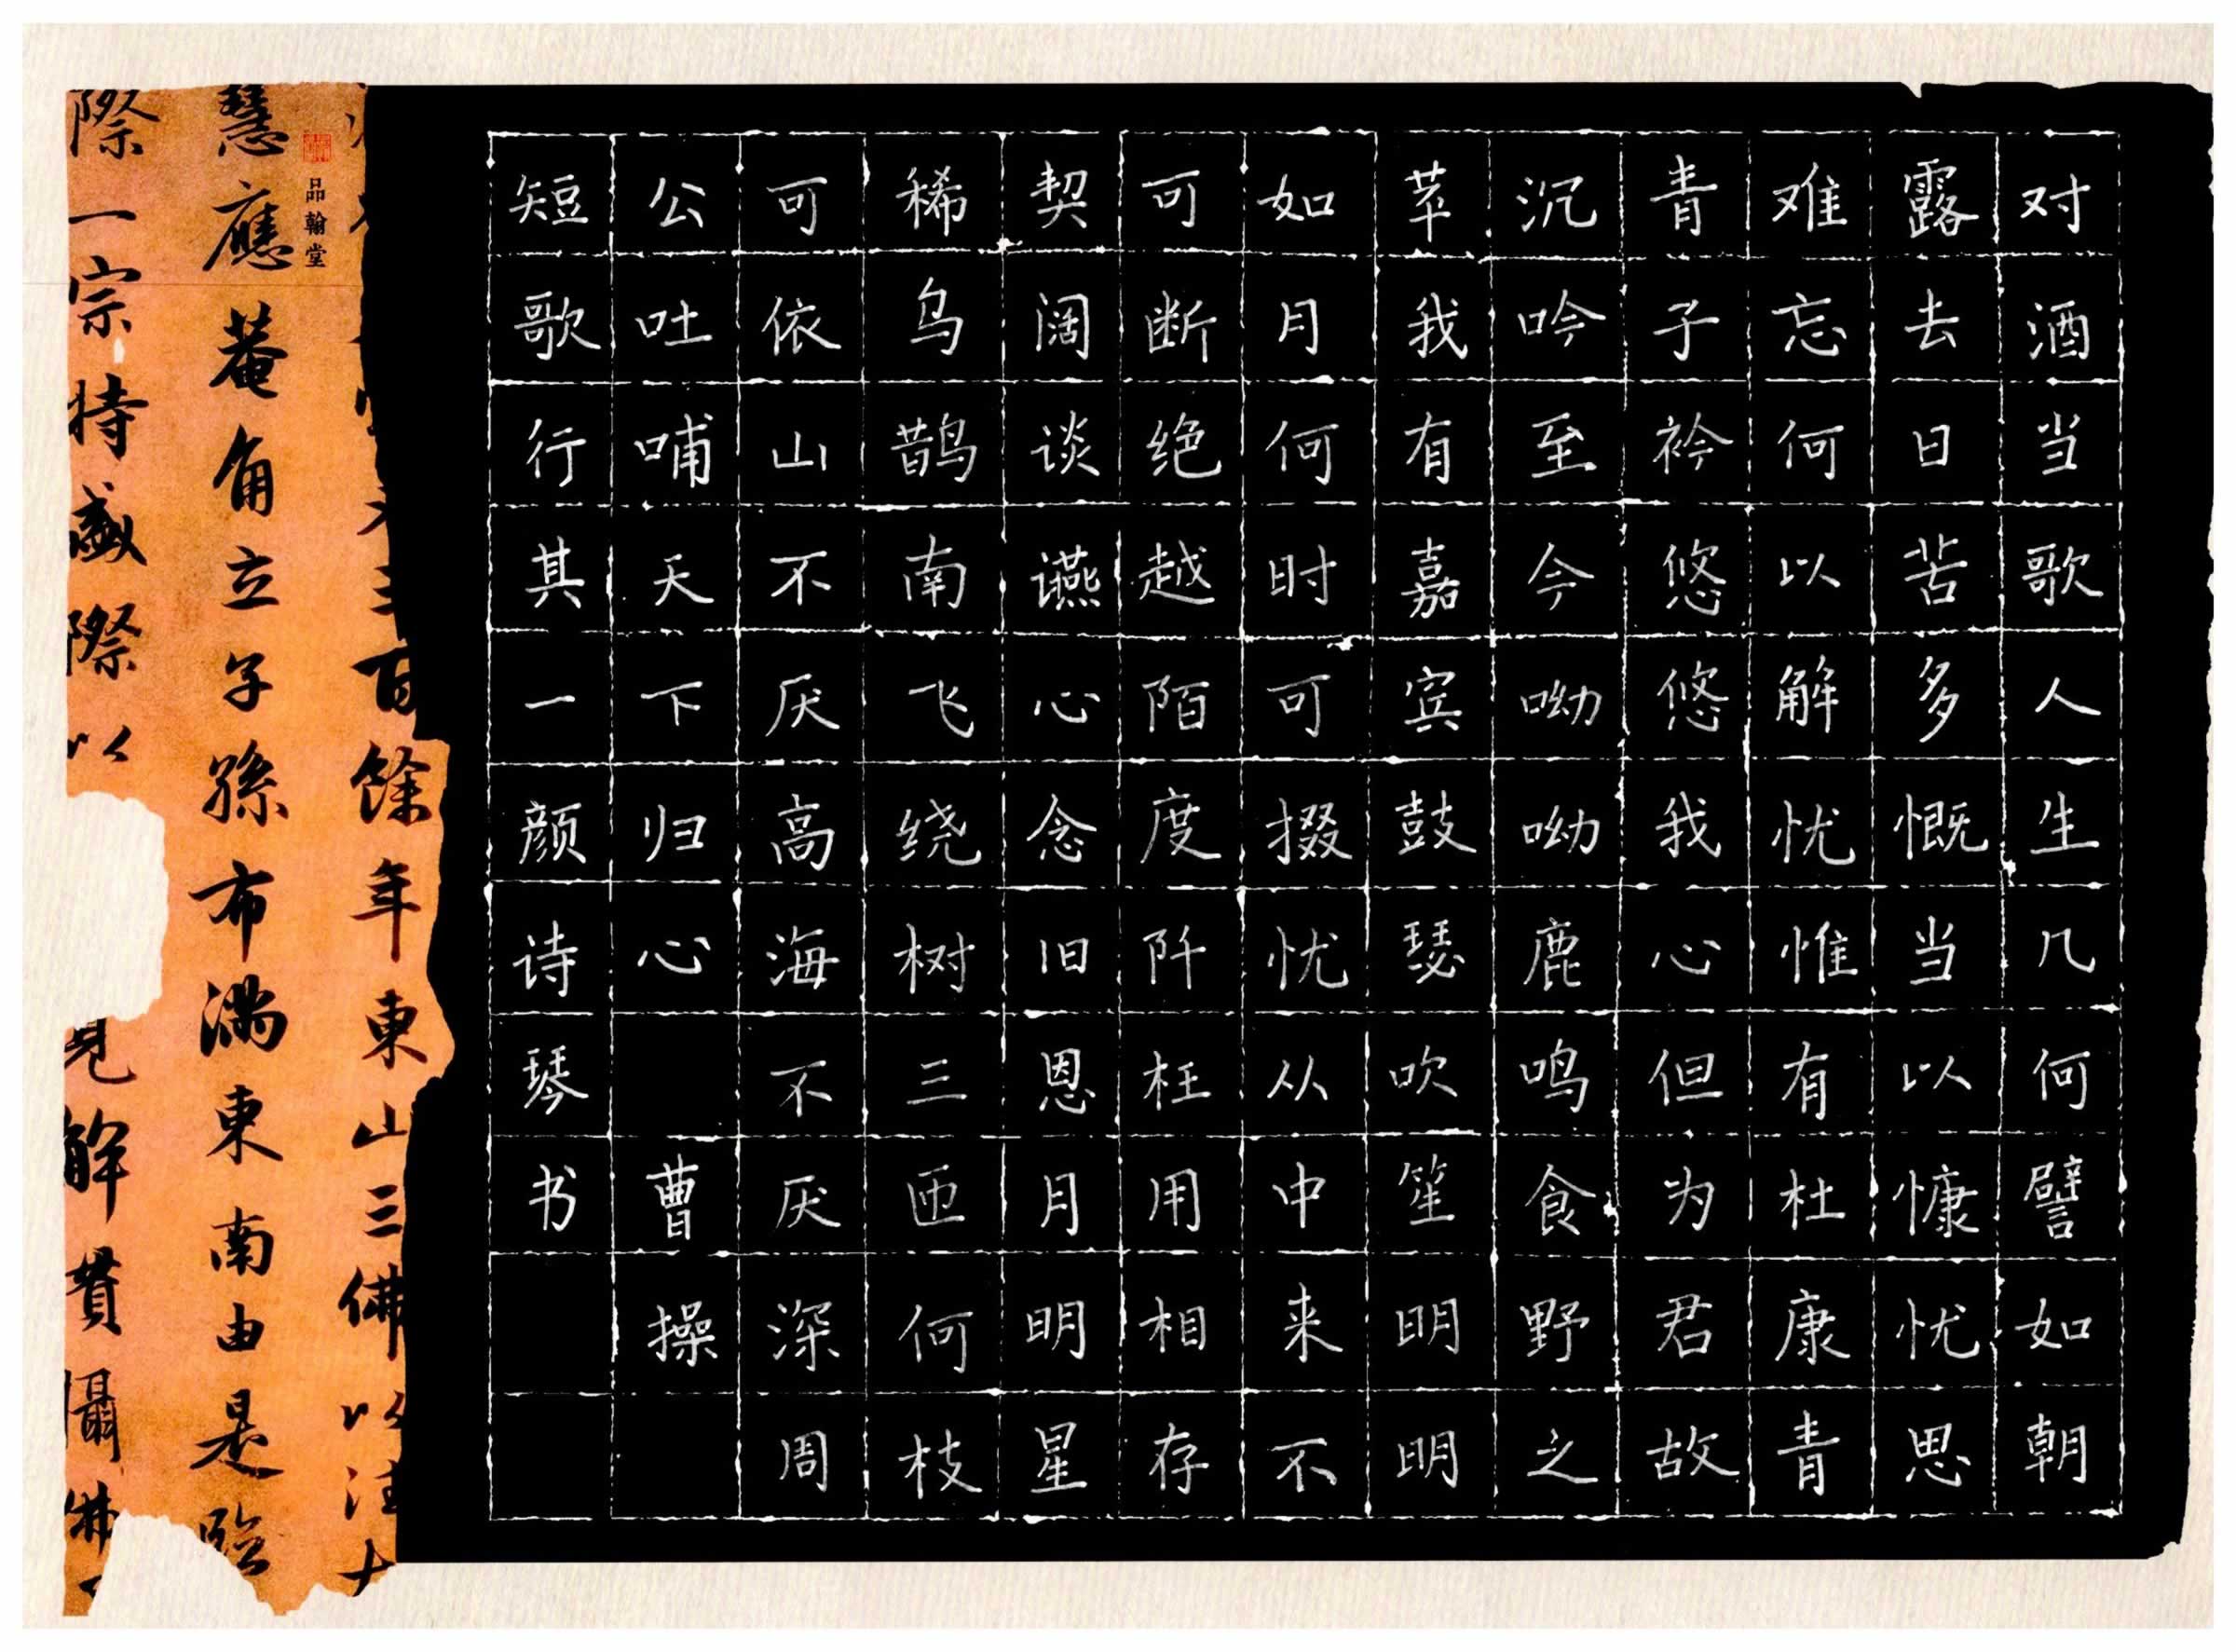 对酒当歌人生几何譬如朝
露去日苦多慨当以慷忧思
难忘何以解忧惟有杜康青
青子衿悠悠我心但为君故
沉吟至今呦呦鹿鸣食野之
苹我有嘉宾鼓瑟吹笙明明
如月何时可掇忧从中来不
可断绝越陌度阡枉用相存
契阔谈讌心念旧恩月明星
稀乌鹊南飞绕树三匝何枝
可依山不厌高海不厌深周
公吐哺天下归心 曹操
短歌行其一颜诗琴书
百餘年東山三佛以法
品翰堂
慧應菴角立子孫布满東南由是臨
際一宗特盛際以
見解貫攝佛